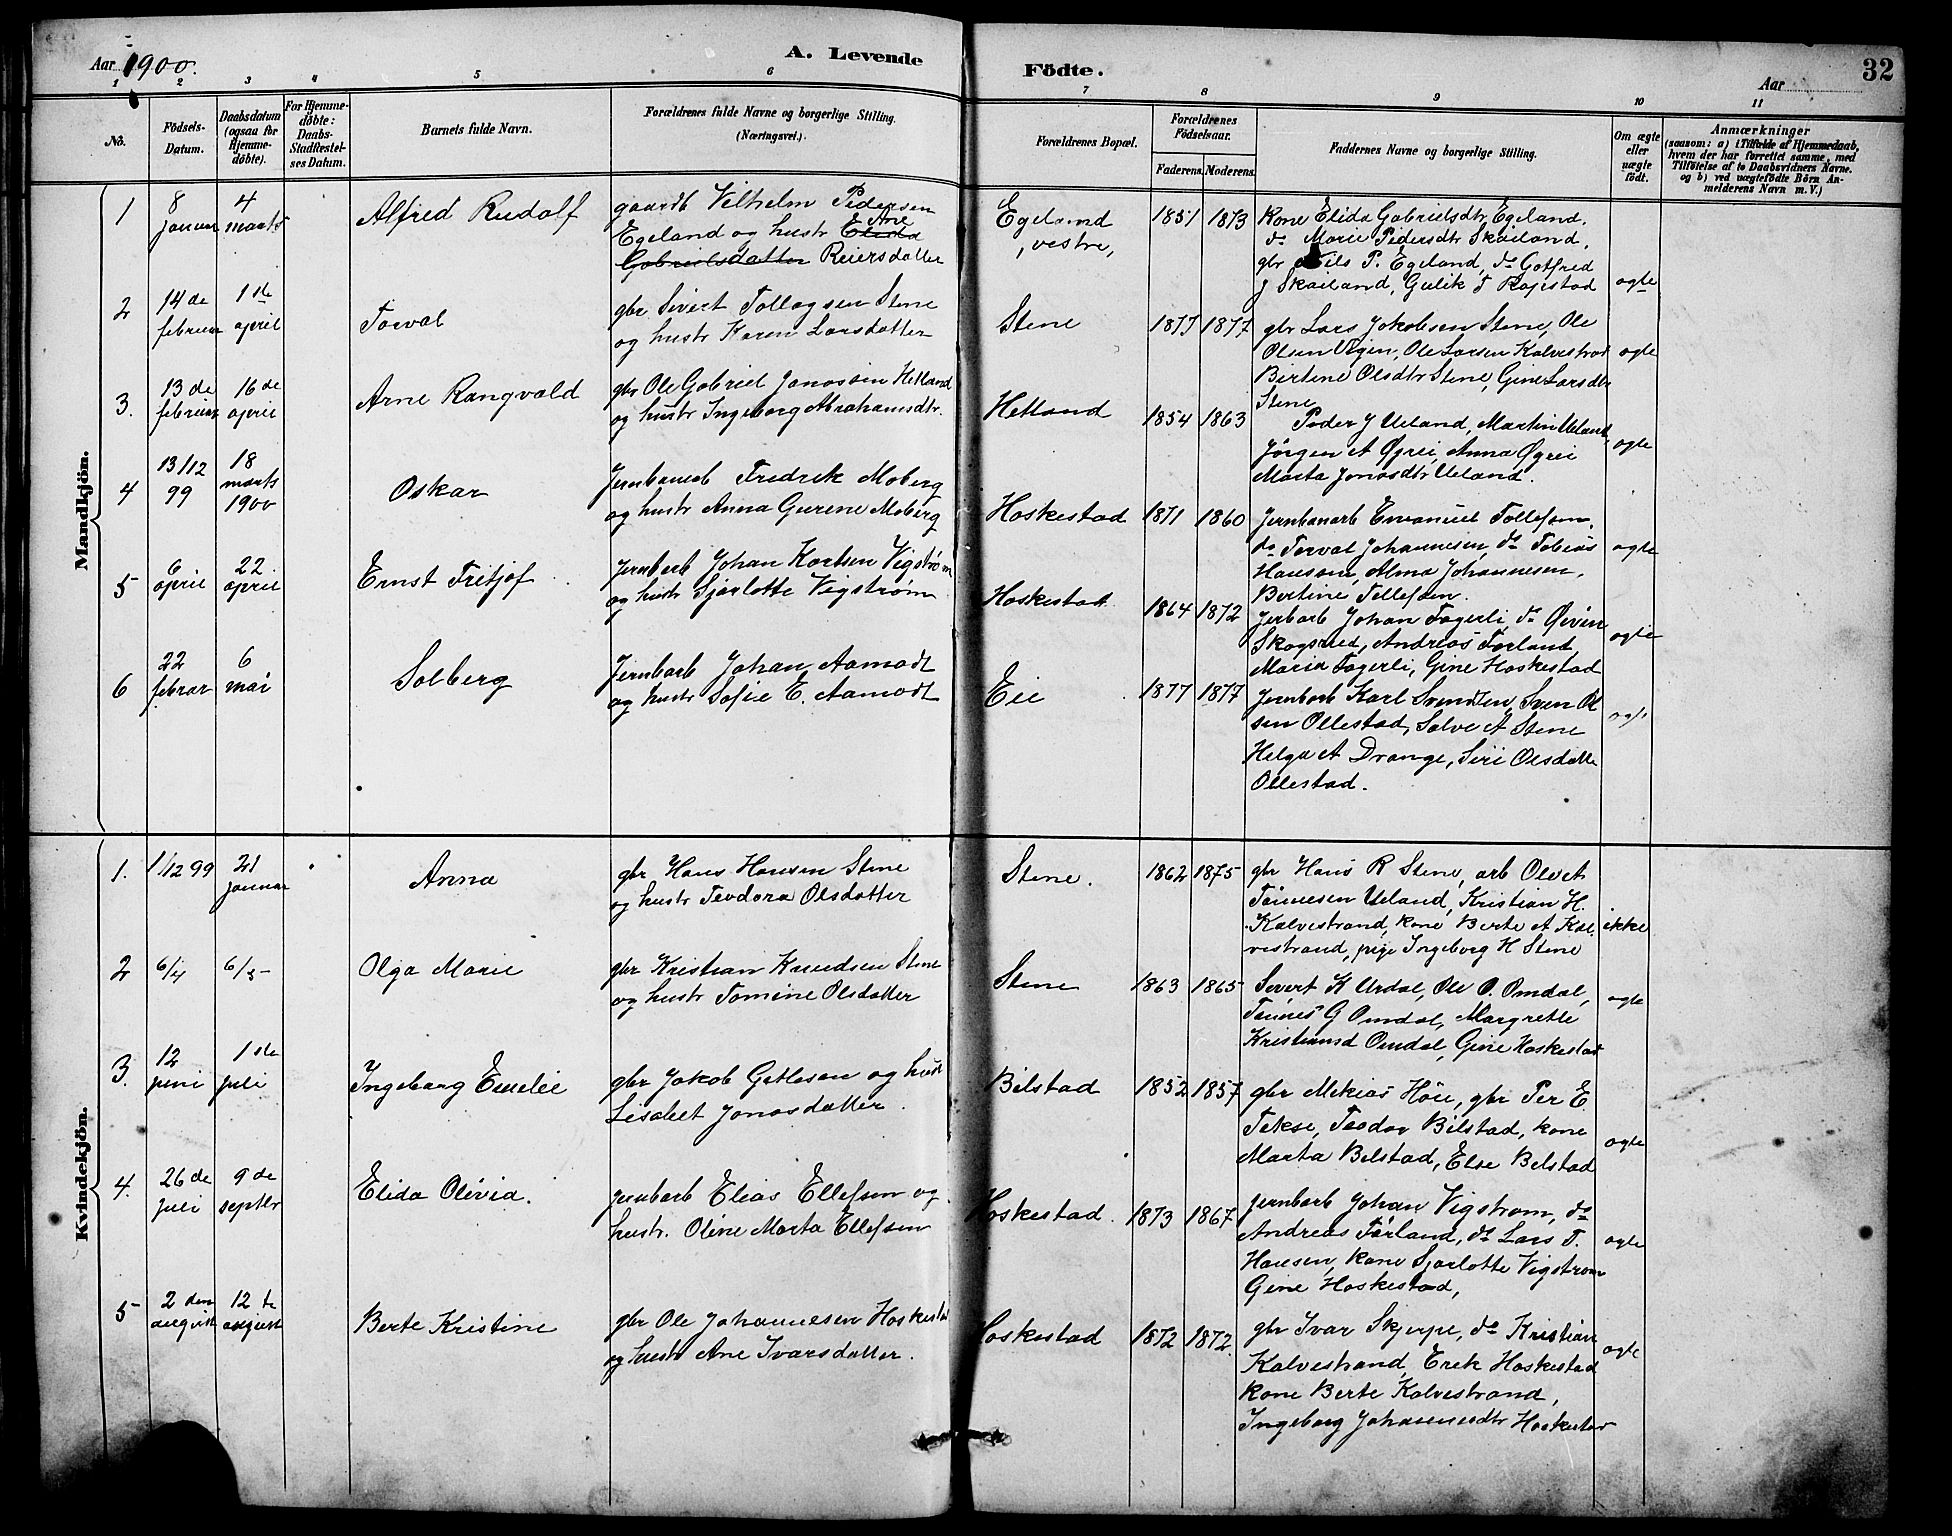 Aar 1900.
A. Levende
Födte.
Aar
32
1 2 3 4 5 6 7 8 9 10 11
No.
Födsels-Datum.
Daabsdatum (ogsaa for Hjemme-döbte).
For Hjemme-döbte: Daabs-Stadfæstel-ses Datum.
Barnets fulde Navn.
Forældrenes fulde Navne og borgerlige Stilling. (Næringsvei.)
Forældrenes Bopæl.
Forældrenes Födselsaar.
Faderens. Moderens.
Faddernes Navne og borgerlige Stilling.
Om ægte eller uægte födt.
Anmærkninger
(saasom: a) i Tilfælde af Hjemmedaab, hvem der har forrettet samme, med Tilföielse af to Daabsvidners Navne. og b) ved uægtefödte Börn An-melderens Navn m. V.)
Mandkjön.
1
8 januar
4 marts
Alfred Rudolf
gaardb Vilhelm Pedersen
Egeland og hustr Elida Ane
Gabrielsdatter Reiersdatter
Egeland
, vestre,
1851 1873
Kone Elida Gabrielsdtr Egeland,
do Marie Pedersdtr Skåiland,
gbr Nils P. Egeland, do Gotfred
J Skåiland, Gulik T Rapstad
ægte
2
14 de februar
1 ste april
Torval
gbr Sivert Tollagsen Stene
og hustr Karen Larsdatter
Stene
1877 1877
gbr Lars Jakobsen Stene, Ole
Olsen Vigen, Ole Larsen Kalvestrad
Birtine Olsdtr Stene, Gine Larsdtr
Stene
ægte
3.
13 de februar
16 de april
Arne Rangvald
gbr Ole Gabriel Jonassen Hetland
og hustr Ingeborg Abrahamsdtr.
Hetland
1854 1863
Peder J Ueland, Martin Ueland
Jørgen A Øgrei, Anna Øgrei
Marta Jonasdtr Ueland.
ægte
4
13/12 99
18 marts 1900
Oskar
Jernbanearb Fredrik Moberg
og hustr Anna Gurene Moberg
Heskestad
1871 1860
Jernbanarb Emanuel Tollefsen,
do Torval Johannesen, do Tobias
Hansen, Alma Johannesen,
Bertine Tellefsen.
ægte
5
6 april
22 april
Ernst Fritjof
Jernbarb Johan Karlsen Vigstrøm
og hustr Sjarlotte Vigstrøm
Heskestad
1864 1872
Jerbarb Johan Fagerli, do Øivin
Skogsrud, Andreas Førland,
Maria Fagerli, Gine Heskestad
ægte
6
22 februar
6 mai
Solberg
Jernbarb Johan Aamodt
og hustr Sofie E. Aamodt
Eie
1877 1877
Jernbarb Karl Svendsen, Sven Ol
sen Ollestad, Salve A Stene
Helga A Drange, Siri Olsdatte
Ollestad.
Kvindekjön.
1.
1/12 99
21 januar
Anna
gbr Hans Hansen Stene
og hustr Teodora Olsdatter
Stene.
1862 1875
gbr Hans R Stene, arb Olvet
Tønnesen Ueland, Kristian H.
Kalvestrand, kone Berte A Kal
vestrand, pige Ingeborg H Stene
ikke
2
6/4
6/5 -
Olga Marie
gbr Kristian Knudsen Stene
og hustr Tomine Olsdatter
Stene
1863 1865
Sivert K Urdal, Ole O. Omdal,
Tønnes G Omdal, Margrethe
Kristiansd Omdal, Gine Heskestad
ægte
3.
12 juni
1 ste juli
Ingeborg Emelie
gbr Jakob Gatlesen og hust
Lisabet Jonasdatter.
Bilstad
1852 1857
gbr Mekias Höie, gbr Per E.
Tekse, Teodor Bilstad, kone
Marta Bilstad, Else Bilstad
ægte
4.
26 de juli
9 de septbr
Elida Olivia.
jernbarb Elias Ellefsen og
hustr. Oline Marta Ellefsen
Heskestad.
1873 1867
jernbarb Johan Vigstrøm, do
Andreas Førland, do Lars T.
Hansen, kone Sjarlotte Vigstrøm
Gine Heskestad,
ægte
5
2 den august
12 te august
Berte Kristine
gbr Ole Johannesen Heskestad
og hustr Ane Ivarsdatter.
Heskestad
1872 1872.
gbr Ivar Skjerpe, do Kristian
Kalvestrand, Erek Heskestad
kone Berte Kalvestrand,
Ingeborg Johannesdtr Heskestad
ægte